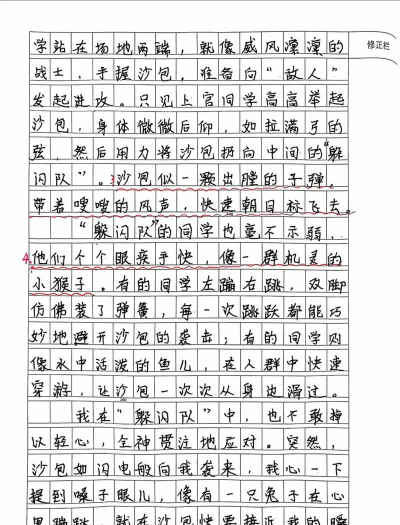 修正栏
学站在场地两端，就像威风凛凛的
战士，手握沙包，准备向“敌人”
发起进攻。只见上官同学高高举起
沙包，身体微微后仰，如拉满弓的
弦，然后用力将沙包扔向中间的“躲
闪队”。3沙包似一颗出膛的子弹，
带着嗖嗖的风声，快速朝目标飞去。
“躲闪队”的同学也毫不示弱，
4.他们个个眼疾手快，像一群机灵的
小猴子。有的同学左蹦右跳，双脚
仿佛装了弹簧，每一次跳跃都能巧
妙地避开沙包的袭击；有的同学则
像水中活泼的鱼儿，在人群中快速
穿游，让沙包一次次从身边滑过。
我在“躲闪队”中，也不敢掉
以轻心，全神贯注地应对。突然，
沙包如闪电般向我袭来，我心一下
提到嗓子眼儿，像有一只兔子在心
里蹦跶，就在沙包快要接近我的腰